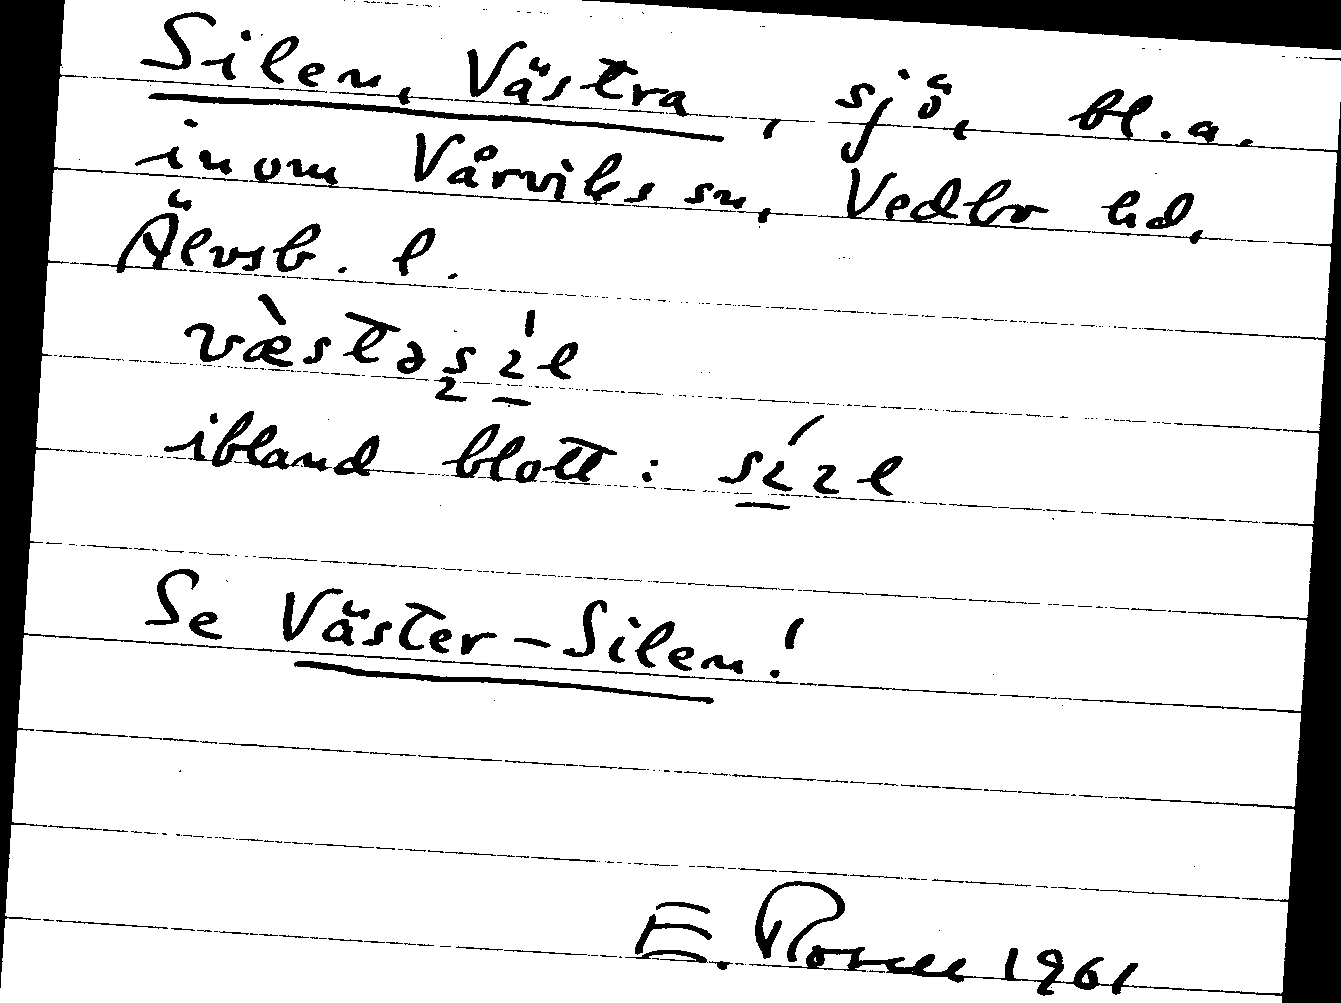 Silen, Västra, sjö, bl.a.
inom Vårviks sn, Vedbo hd,
Älvsb. l.
ibland blott:
Se Väster-Silen!
E. 1961